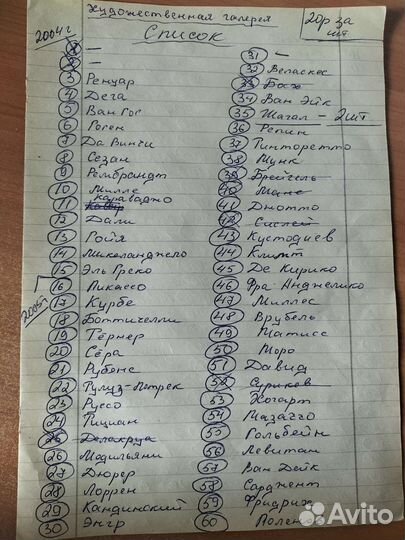 Художественная галерея
2004г
Список
20р за шт
1 —
2 —
3 Ренуар
4 Дега
5 Ван Гог
6 Гоген
7 Да Винчи
8 Сезан
9 Рембрандт
10 Милле
11 Караваджо
12 Дали
13 Гойя
14 Микеланджело
15 Эль Греко
2005г
16 Пикассо
17 Курбе
18 Боттичелли
19 Тёрнер
20 Сёра
21 Рубенс
22 Тулуз-Лотрек
23 Руссо
24 Тициан
25 Делакруа
26 Модильяни
27 Дюрер
28 Лоррен
29 Кандинский
30 Энгр
31 —
32 Веласкес
33
34 Ван Эйк
35 Шагал — 2шт
36 Репин
37 Тинторетто
38 Мунк
39 Брейгель
40 Мане
41 Джотто
42 Сислей
43 Кустодиев
44 Климт
45 Де Кирико
46 Фра Анджелико
47 Миллес
48 Врубель
49 Матисс
50 Моро
51 Давид
52 Суриков
53 Хогарт
54 Мазаччо
55 Гольбейн
56 Левитан
57 Ван Дейк
58 Сарджент
59 Фридрих
60 Поленов
Avito